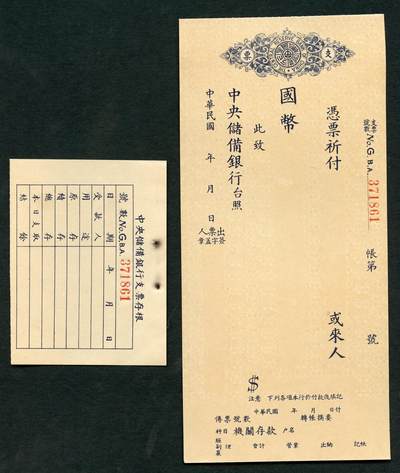 支
票
THE CENTRAL RESERVE BANK OF CHINA
支票
號數 No. G B.A. 371861
帳第 號
憑票祈付
或來人
國幣
此致
中央儲備銀行台照
中華民國 年 月 日
出票人
簽字蓋章
注意 下列各項本行於付款後填記
中華民國 年 月 日付
傳票號數 轉帳摘要
科目 機關存款 戶名
經副襄理 會計 營業 出納 記帳
中央儲備銀行支票存根
號數 No. G B.A. 371861
日期 年 月 日
受款人
用途
原存
續存
總存
本日支取
結餘